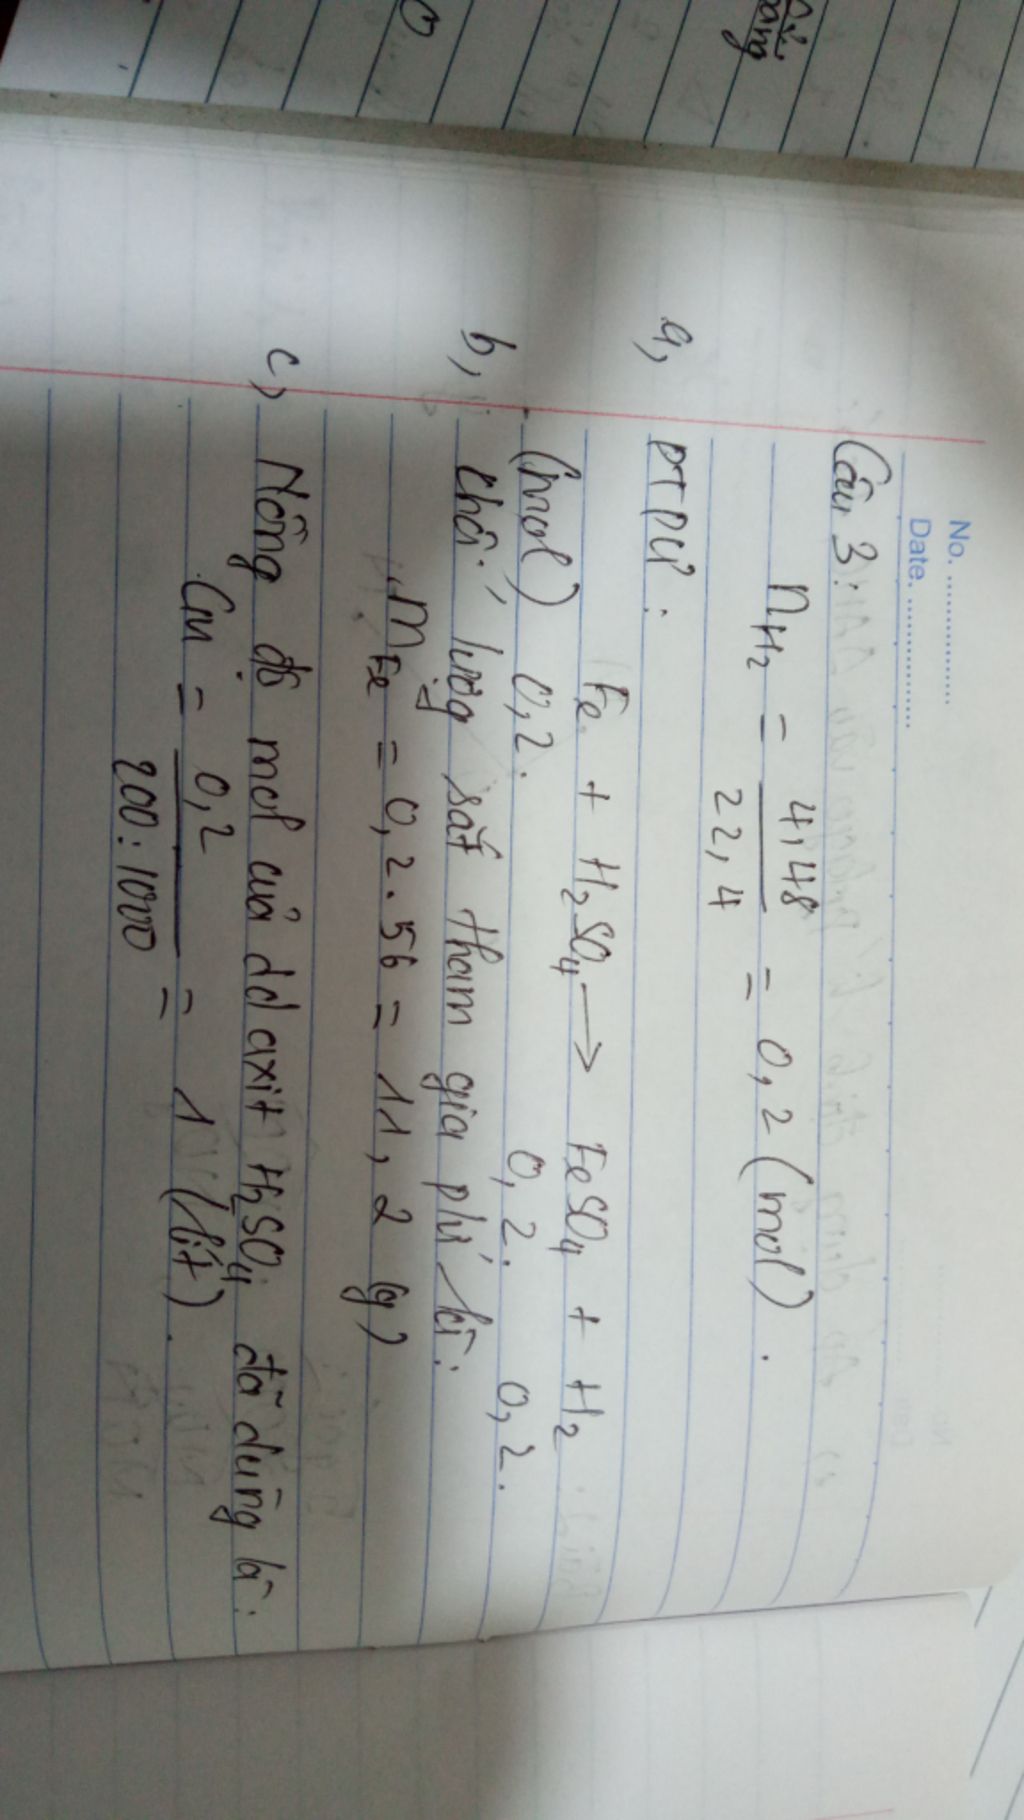 No. ...............
Date. ...............
Câu 3:
nH₂ = 4,48 / 22,4 = 0,2 (mol).
a, PTPƯ:
Fe + H₂SO₄ → FeSO₄ + H₂
(mol) 0,2. 0,2. 0,2.
b, Khối lượng sắt tham gia pứ là:
mFe = 0,2.56 = 11,2 (g)
c, Nồng độ mol của dd axit H₂SO₄ đã dùng là:
CM = 0,2 / 200:1000 = 1 (lít).